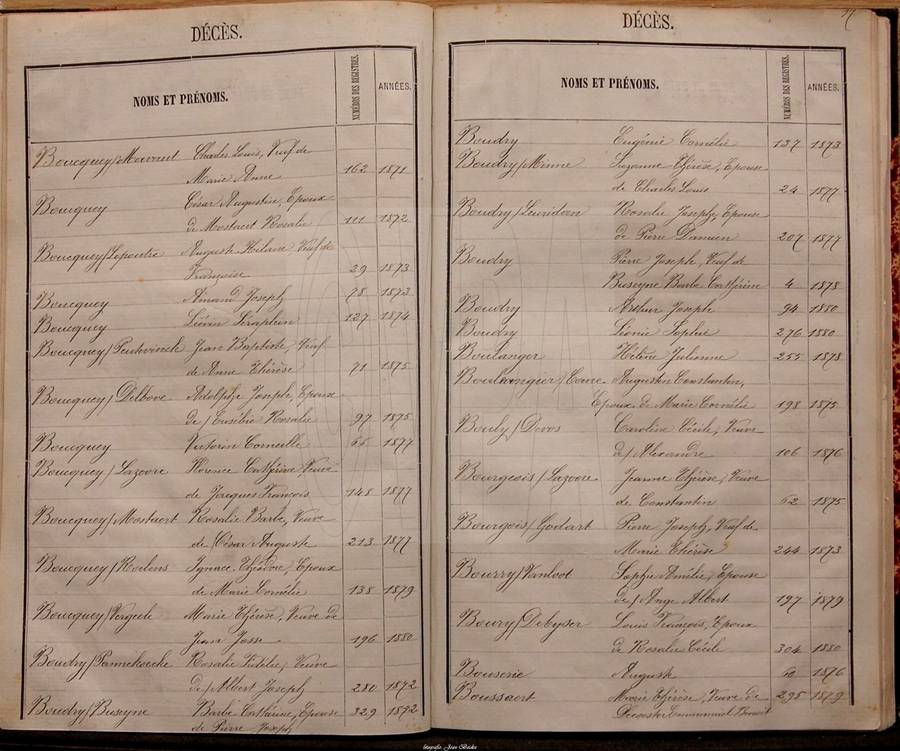 DÉCÈS.
NOMS ET PRÉNOMS. NUMÉROS DES REGISTRES. ANNÉES.
Boucquey/Mouveut Charles Louis, Veuf de
Marie Anne 162 1871
Boucquey César Augustin, Epoux
de Mostaert Rosalie 111 1872
Boucquey/Lepoutre Auguste Hilaire Veuf de
Françoise 29 1873
Boucquey Amand Joseph 78 1873
Boucquey Liévin Séraphin 127 1874
Boucquey/ Jean Baptiste, Veuf
de Anne Thérèse 71 1875
Boucquey/Delbove Adolphe Joseph, Epoux
de/Eusébie Rosalie 97 1875
Boucquey Victorin Corneille 66 1877
Boucquey/Lazoore Florence Cathérine Veuve
de Jacques François 148 1877
Boucquey/Mostaert Rosalie Barbe, Veuve
de César Auguste 213 1877
Boucquey/Roelens Ignace Théodore, Epoux
de Marie Cornélie 138 1879
Boucquey/Vergote Marie Thérèse, Veuve de
Jean Josse 196 1880
Boudry/Pannekoecke Rosalie Fidélie, Veuve
de/Albert Joseph 280 1872
Boudry/Buseyne Barbe Cathérine, Epouse 329 1872
de Pierre Joseph
DÉCÈS.
NOMS ET PRÉNOMS. NUMÉROS DES REGISTRES. ANNÉES.
Boudry Eugénie Cornélie 137 1873
Boudry/Minne Suzanne Thérèse, Epouse
de Charles Louis 24 1877
Boudry/Leuridan Rosalie Joseph, Epouse
de Pierre Damien 207 1877
Boudry Pierre Joseph, Veuf de
Buseyne Barbe Cathérine 4 1878
Boudry Arthur Joseph 94 1880
Boudry Léonie Sophie 276 1880
Boulanger Hélène Julienne 255 1878
Boulangier/Corne Augustin Constantin,
Epoux de Marie Cornélie 198 1875
Bouly/Devos Caroline Cécile, Veuve
de/Alexandre 106 1876
Bourgeois/Lazoore Jeanne Thérèse, Veuve
de Constantin 62 1875
Bourgois/Godart Pierre Joseph, Veuf de
Marie Thérèse 244 1873
Bourry/Vanloot Sophie Amélie, Epouse
de/Ange Albert 197 1879
Boury/Debyser Louis François, Epoux
de Rosalie Cécile 304 1880
Bouserie Auguste 60 1876
Boussaert Marie Thérèse, Veuve de 295 1879
Decoster Emmanuel Benoit